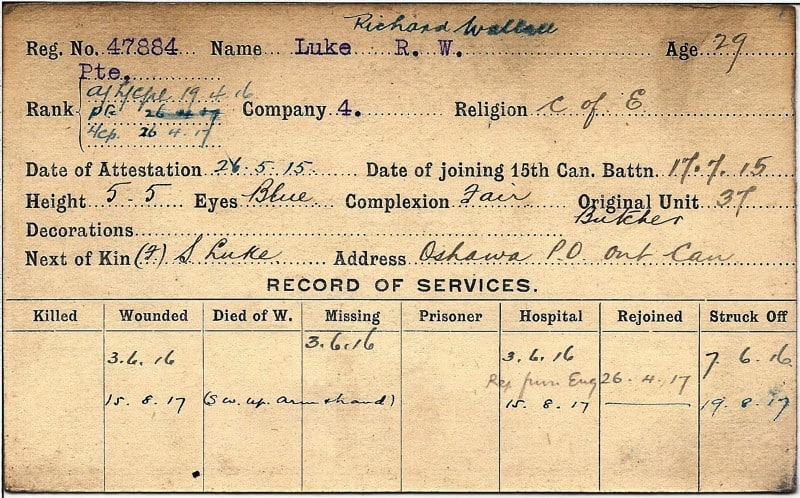 Richard Wallace
Reg. No. 47884 Name Luke R. W. Age 29
Pte.
Rank a/L/Cpl 19.4.16 Company 4. Religion C of E
pte 26 4 17
L/cp. 26 4.17
Date of Attestation 26.5.15. Date of joining 15th Can. Battn. 17.7.15
Height 5-5 Eyes Blue Complexion Fair Original Unit 37
Decorations Butcher
Next of Kin (F) S Luke Address Oshawa P.O Ont Can
RECORD OF SERVICES.
Killed Wounded Died of W. Missing Prisoner Hospital Rejoined Struck Off
3.6.16 3.6.16 3.6.16 7.6.16
Rej from Eng 26.4.17
15.8.17 (Sw. up. arm & hand) 15.8.17 19.8.17